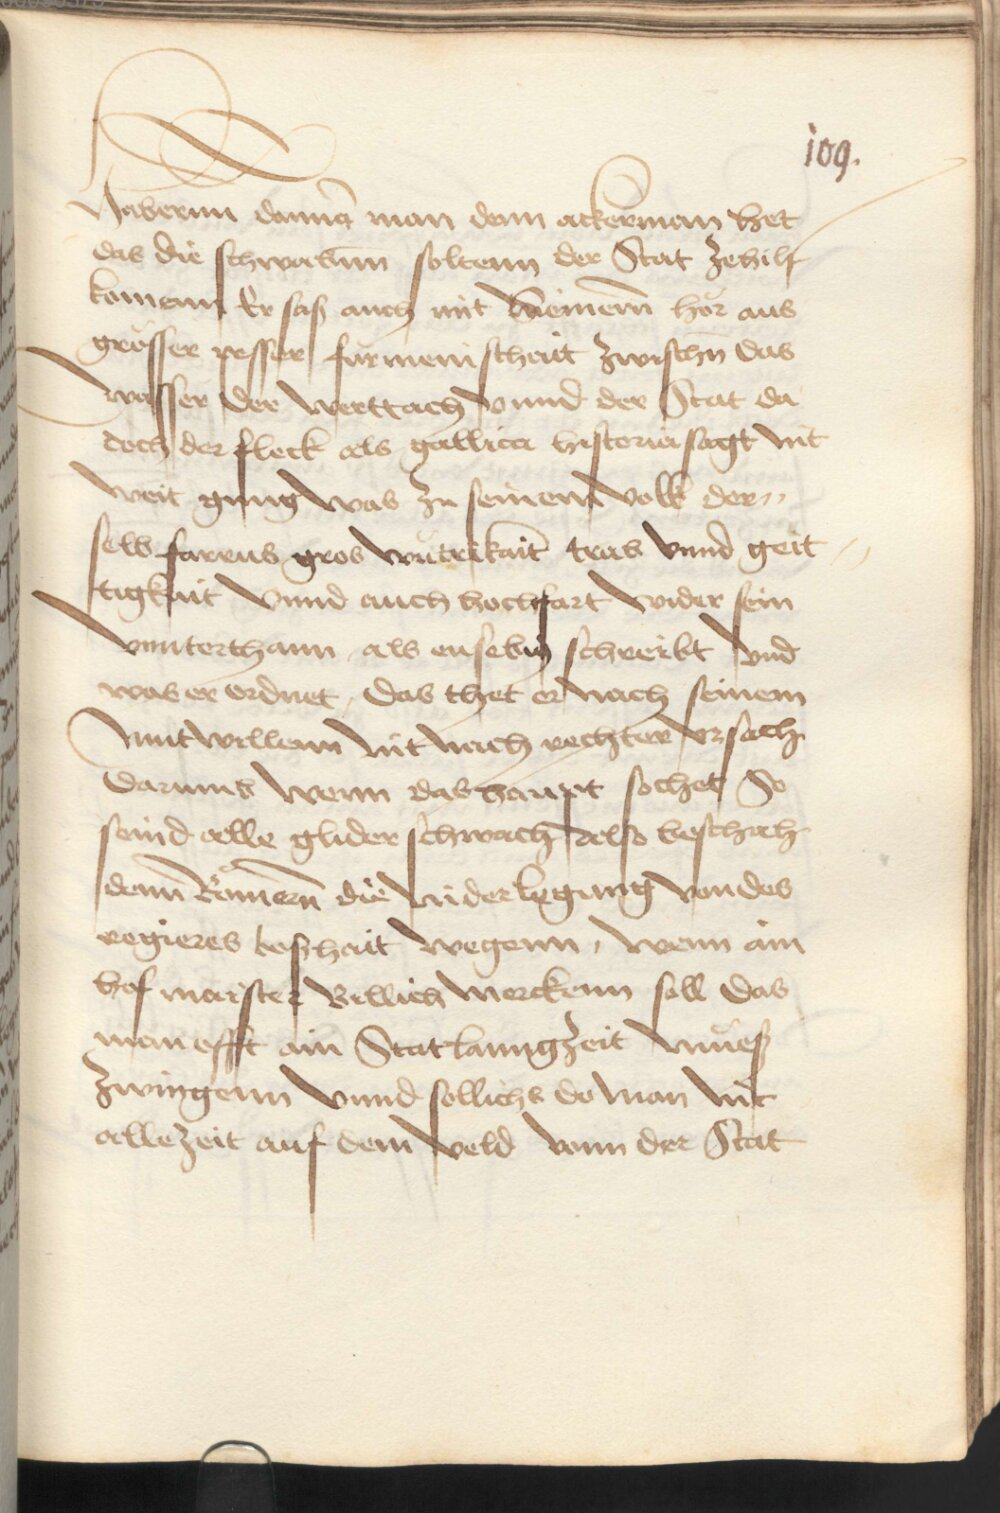 109.
Nabernn dannā man denn ackerman het
das die schwabenn soltenn der Stat zehilf
komenn Er sas auch mit seinemm hör aus
grosser pesser fürmemschait zwischn das
wasser der werttach vnnd der Stat da
doch der fleck als gallica historia sagt nit
weit gnug was zu seinem volk der„
selb farrus gros wütrikait trab vnnd geit„
tigkait vnnd auch hochfart wider sein
vnnterthann als eusebiꝰ schreibt vnd
was er ordnet, das thet er nach seinem
mutwillenn nit nach rechter vrsach
darumb wenn das haupt sochet So
seind alle glider schwach also beschach
denn Römern die niderlegung von des
regieres boshait wegenn, wenn ain
hofmaister billich merckenn soll das
man offt ain Stat lanngzeit mues
zwingenn vnnd sollichs do man nit
allezeit auf dem veld vonn der Stat